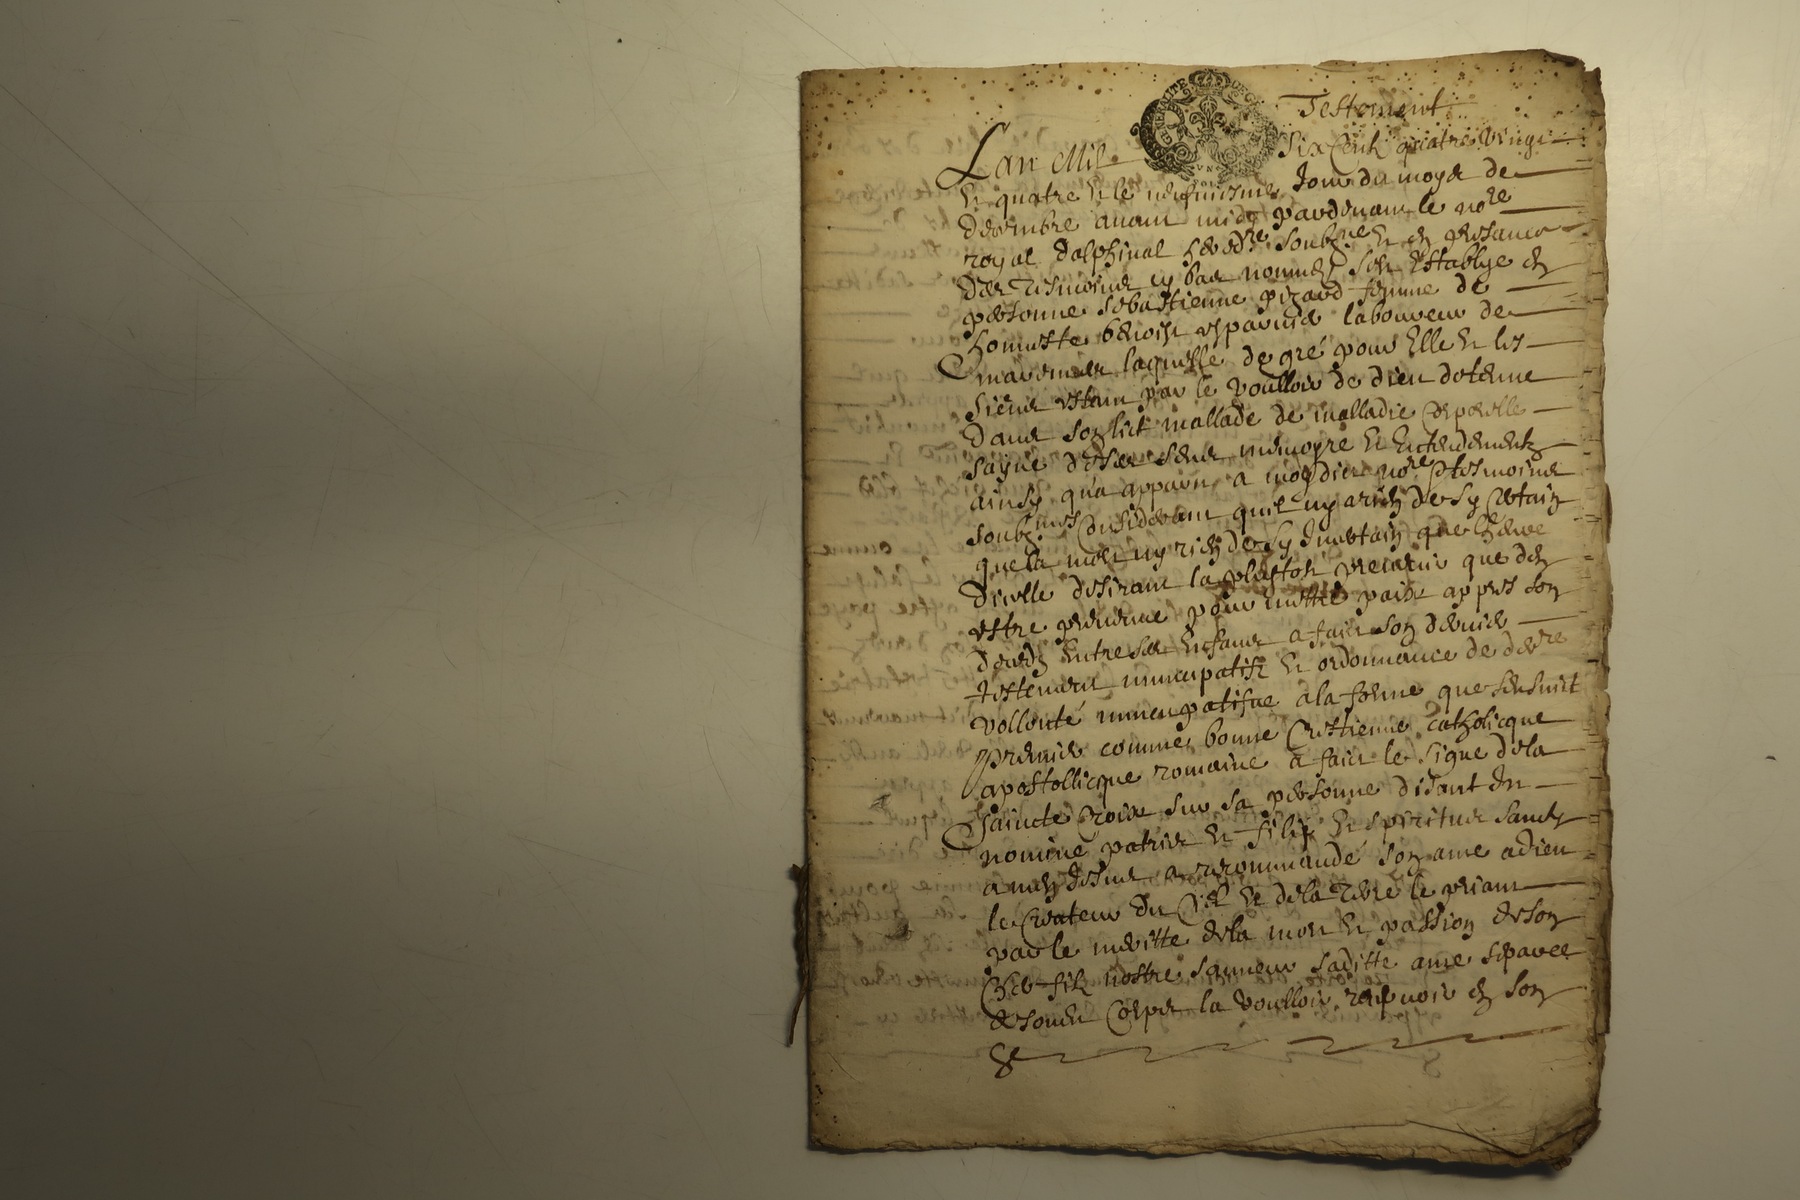 GENERALITE DE GR
VN SOL
Testement
Lan Mil Six Cent quatre vingt
Et quatre Et le neufuiesme Jour du moys de
decembre auant midy pardeuant le no.re
royal dalphinal hered.re soubz.ne Et en presance
des tesmoins cy bas nommes sest Establye en
personne sebastienne girard femme de
honneste benoist laboureur de
laquelle de gré pour Elle Et les
siens estant par le voulloir de dieu detenue
dans son lict mallade de malladie Corporelle
sayne de ses sens memoyre Et Entendement
ainsy qua apparu a moy dict no.re & tesmoins
soubz.nes Considerant quil ny a rien de sy Certain
que la mort ny rien de sy Incertain que lheure
dicelle desirant la plustost preuenir que den
estre preuenue pour mettre paix appres son
deces Entre ses Enfans a faict son dernier
testement nuncupatif Et ordonnance de der.re
vollonté nuncupatifue a la forme que sensuict
premier comme bonne Crestienne catholicque
apostollicque romaine a faict le signe de la
saincte Croix sur sa personne disant In
nomine patris Et filij Et spiritus sancty
amen Jesus a recommandé son ame a dieu
le Createur du Ciel Et de la terre le priant
par le meritte de la mort Et passion de son
Cher fils nostre sauueur saditte ame separee
de son Corps la voulloir repceuoir en son